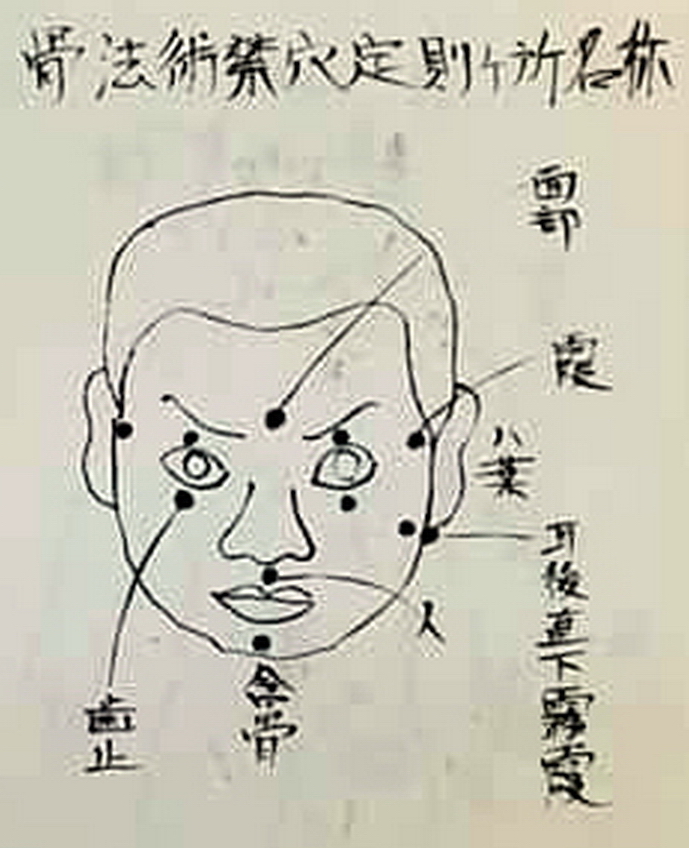 骨法術禁穴定則ヶ所名称
面部
霞
八葉
耳後直下霧霞
人
含骨
歯止